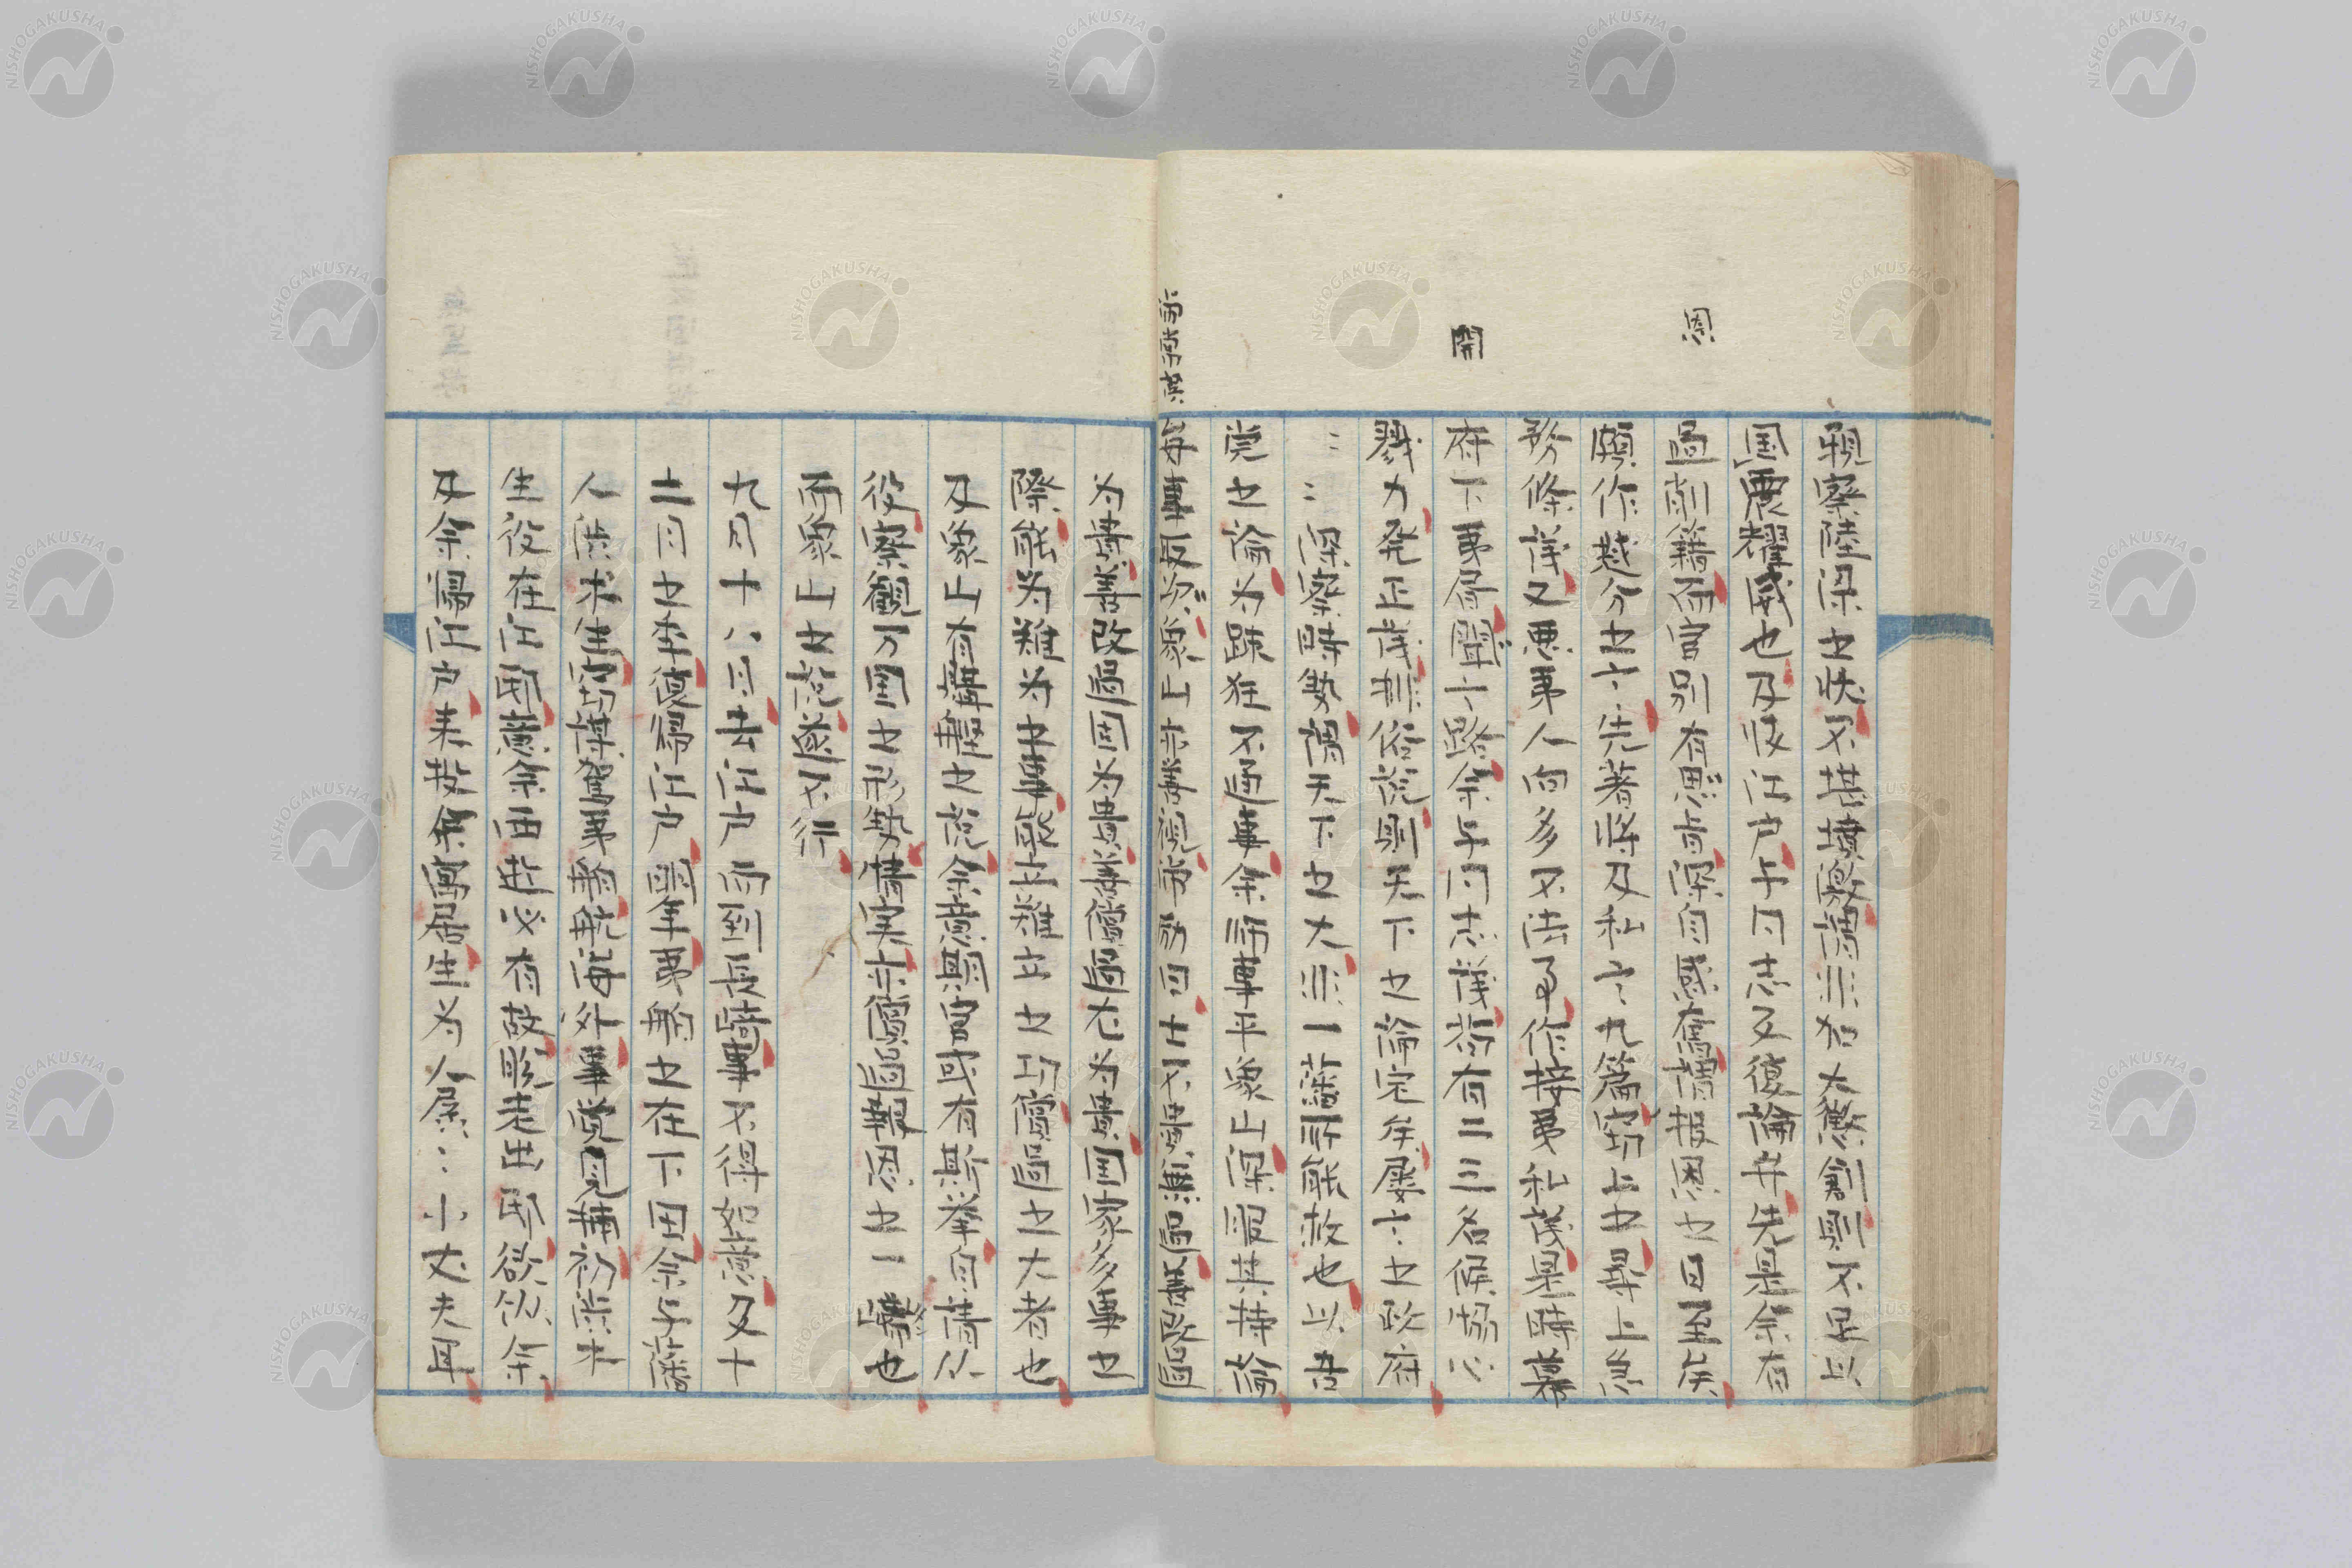 親察陸梁之状不堪憤激謂非如大懲創則不足以
国震耀威也及放江戸与同志反復論弁先是余有
恩
過削籍而官別有恩旨深自感奮謂報恩之日至矣
願作越分之言先著将及私言九篇窃上之尋上急
務條議又悪夷人向多不法乃作接夷私議是時幕
開
府下夷書聞言路余与同志議苟有二三名侯協心
戮力発正議排俗説則天下之論定矣屡言之政府
々々深察時勢謂天下之大非一藩所能救也以吾
党之論為疎狂不通事余師事平象山深服其持論
每事取決象山亦善視嘗励曰士不貴無過貴改過
為貴善改過固為貴善償過尤為貴国家多事之
際能為難為之事能立難立之功償過之大者也
及象山有購艦之説余意期官或有斯挙自請以
役察観万国之形勢情実亦償過報恩之一端也
而象山之説遂不行
九月十八日去江戸西到長崎事不得如意又十
二月之季復帰江戸明年夷舶之在下田余与藩
人渋木生窃謀駕夷舶航海外事覚見捕初渋木
生役在江邸意余西遊必有故脱走出邸欲従余
及余帰江戸来投余寓居生為人孱々小丈夫耳